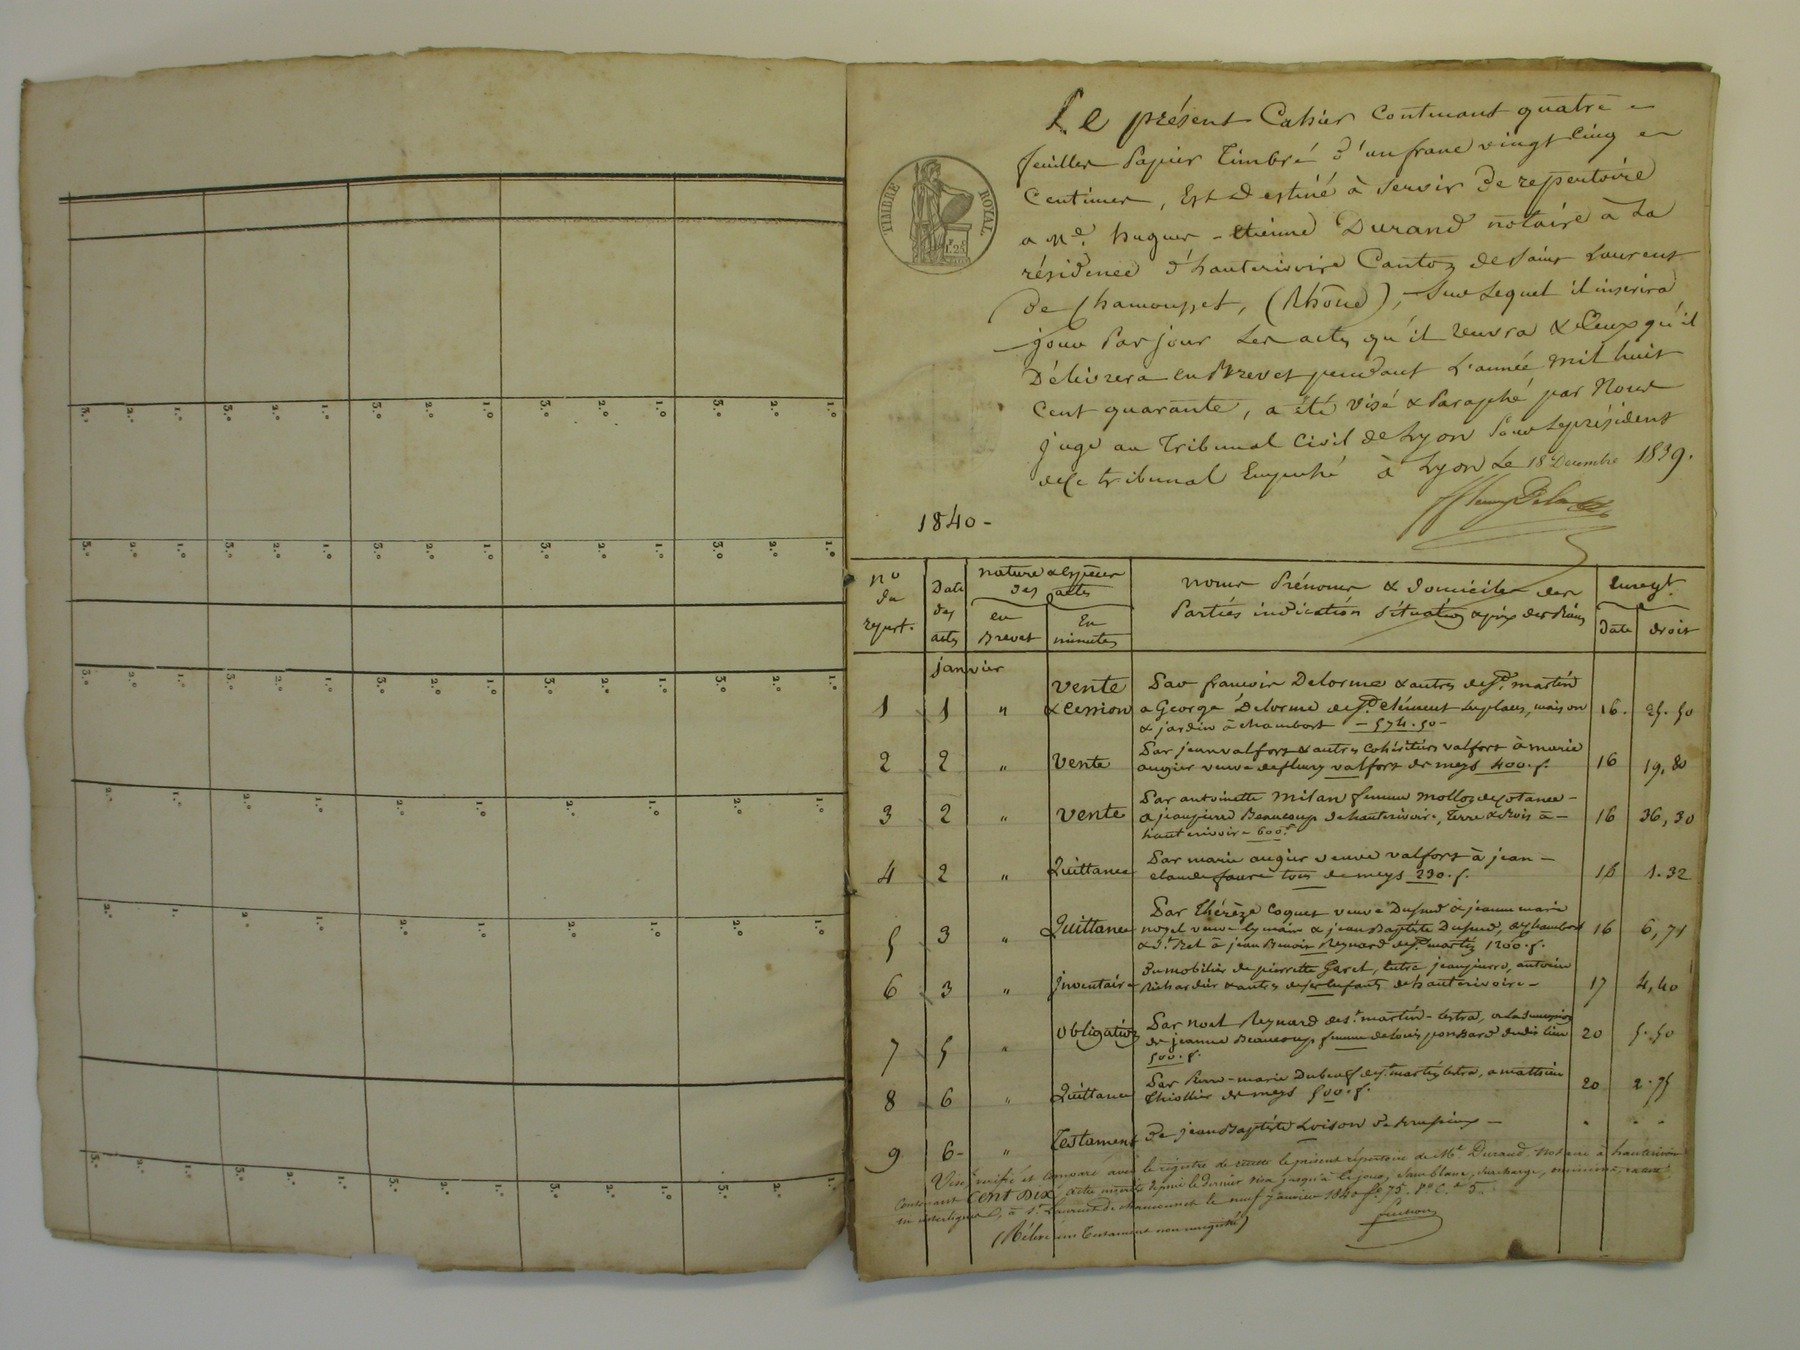 TIMBRE ROYAL
1 F 25
Le présent Cahier Contenant quatre
feuilles Papier Timbré d'un franc vingt Cinq
Centimes, Est Destiné à Servir De repertoire
a Me. hugues-etienne Durand notaire à La
résidence d'hauterivoire Canton de Saint Laurent
De Chamousset, (Rhône), Sur Lequel il inserira
jour Par jour Les actes qu'il recevra & Ceux qu'il
Délivrera en Brevet pendant L'année mil huit
Cent quarante, a été visé & Paraphé par Nous
juge au Tribunal Civil de Lyon Pour Le président
de Ce tribunal Empeché à Lyon Le 18 Decembre 1839.
1840-
no du repert.
Date des actes
nature & Espèces des actes
en Brevet
En minutes
noms Prénoms & Domiciles des
Parties indication Situation & prix des Biens
Enregt.
Date
droit
janvier
1 1 " vente & Cession Par francois Delorme & autres de St. martin
a George Delorme de St. Clément Les places, maison
& jardin à Chambost - 574.50- 16. 25.50
2 2 " Vente Par jean valfort & autres Cohéritiers valfort à marie
augier veuve de fleury valfort de meys 400.f. 16 19,80
3 2 " Vente Par antoinette Milan femme Mollon
a jean pierre Beaucoup de hauterivoire, terre & Bois à-
hauterivoire 600f 16 36,30
4 2 " Quittance Par marie augier veuve valfort à jean-
claude faure tous de meys 230.f. 16 1.32
5 3 " Quittance Par Thérèze Coquet veuve Dufud & jeanne marie
veuve & jean Baptiste Dufud, de Chambost
à jean Benoit Reynard de St. martin 1200.f. 16 6,71
6 3 " Inventaire Du mobilier de pierrette Garel, Entre jean pierre, antoine
Richardier & autres de ses Enfants d'hauterivoire- 17 4,40
7 5 " Obligation Par noel Reynard de St. martin-Lestra,
de jeanne Beaucoup femme de Louis ponsard dudit lieu
500.f. 20 5.50
8 6 " Quittance Par Pierre-marie Duboeuf de St. martin Lestra, a mathieu
Thiollier de meys 500.f. 20 2.75
9 6- " Testament De jean Baptiste Loison de Brussieux - " "
Visé, vérifié et comparé avec le registre de recette le présent répertoire de Me. Durand, Notaire à hauterivoire
Contenant Cent Dix actes inscrits depuis le dernier visa jusqu'à ce jour, Sans blanc, surcharge, omission, rature
ni interligne, à St. Laurent de Chamousset le neuf janvier 1840 fo. 75. Vo. C. 5.
(Relevé un Testament non enregistré)
1.º 2.º 3.º